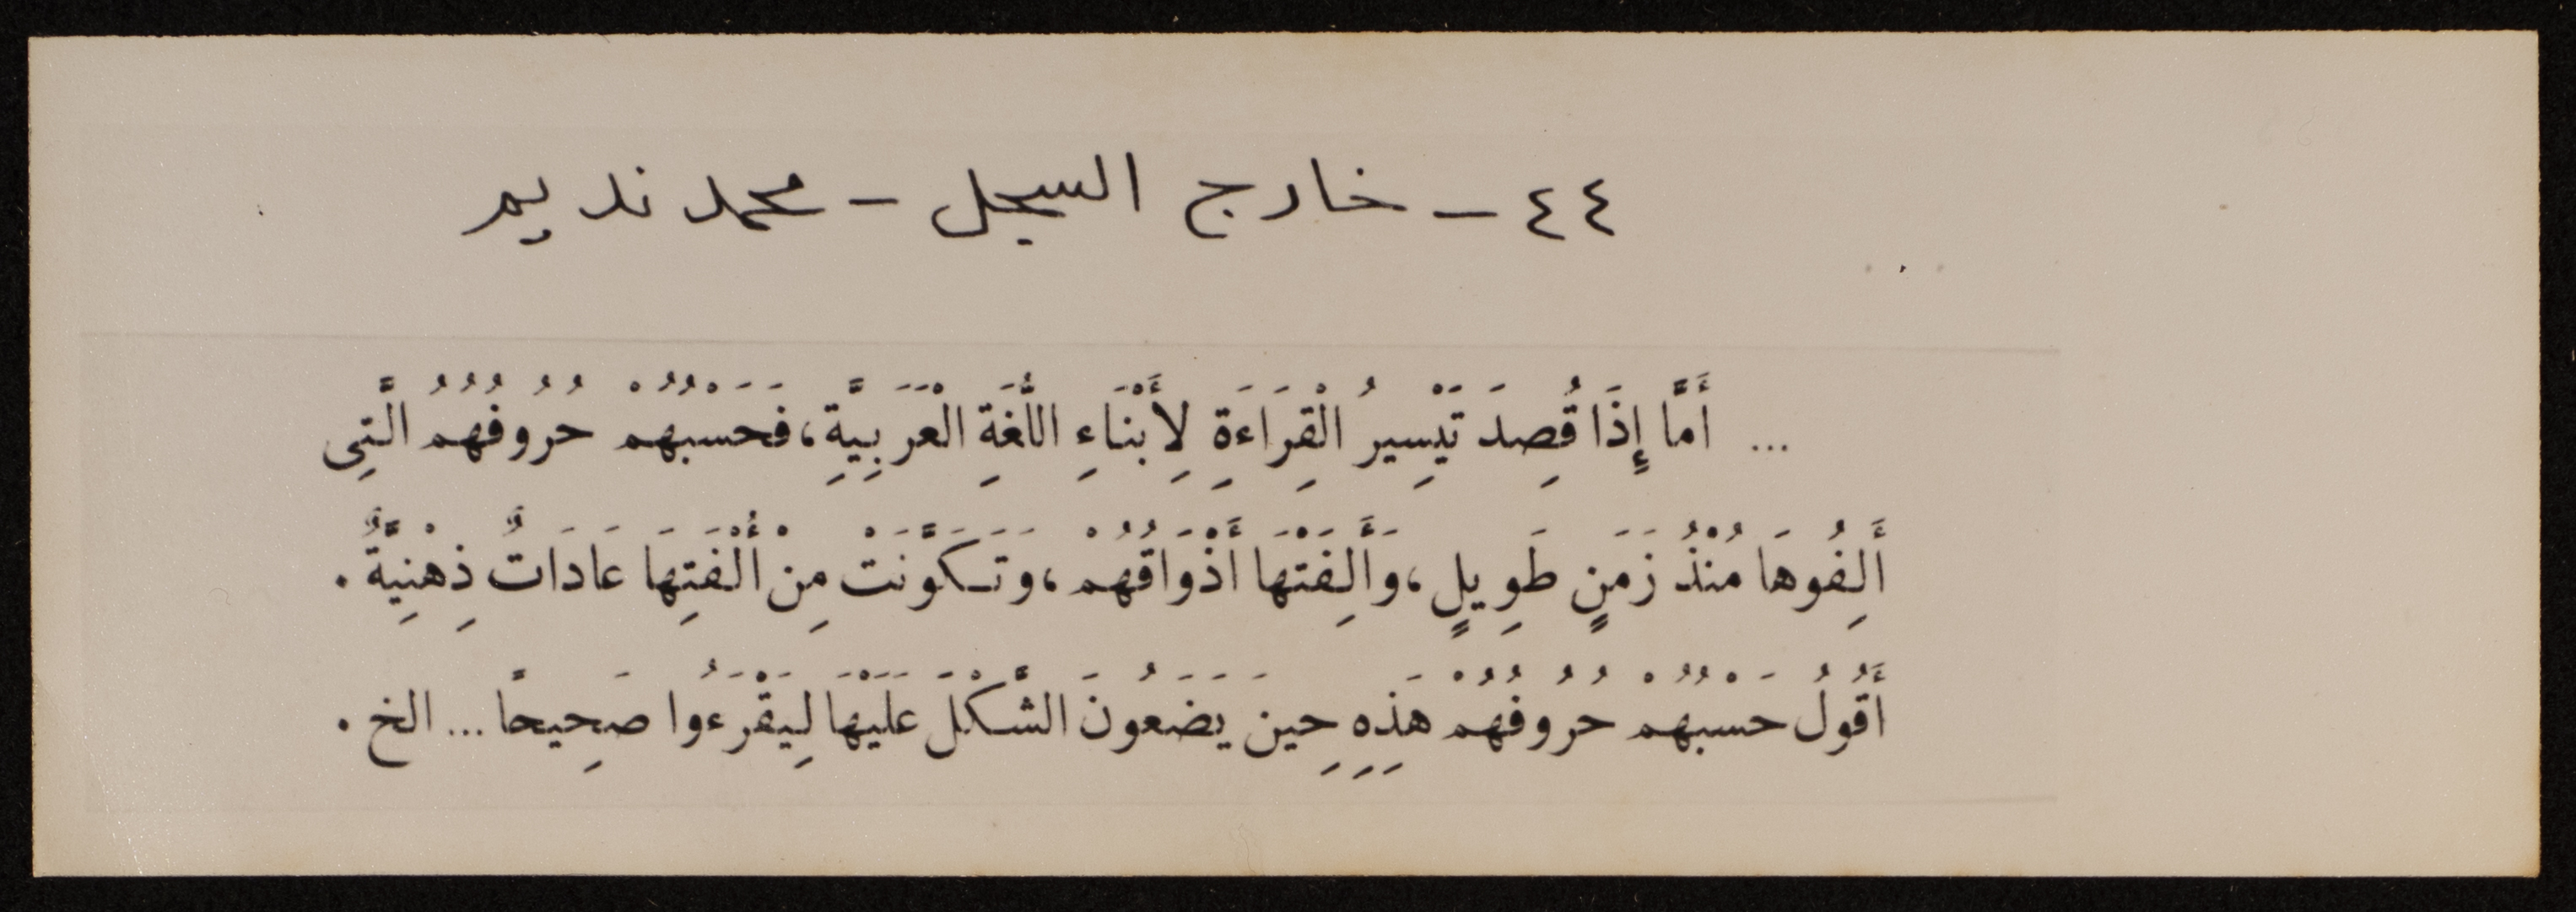 ٤٤ - خارج السجل - محمد نديم
... أَمَّا إِذَا قُصِدَ تَيْسِيرُ الْقِرَاءَةِ لِأَبْنَاءِ اللُّغَةِ الْعَرَبِيَّةِ، فَحَسْبُهُمْ حُرُوفُهُمُ الَّتِى
أَلِفُوهَا مُنْذُ زَمَنٍ طَوِيلٍ، وَأَلِفَتْهَا أَذْوَاقُهُمْ، وَتَكَوَّنَتْ مِنْ أُلْفَتِهَا عَادَاتٌ ذِهْنِيَّةٌ.
أَقُولُ حَسْبُهُمْ حُرُوفُهُمْ هَذِهِ حِينَ يَضَعُونَ الشَّكْلَ عَلَيْهَا لِيَقْرَءُوا صَحِيحًا ... الخ.